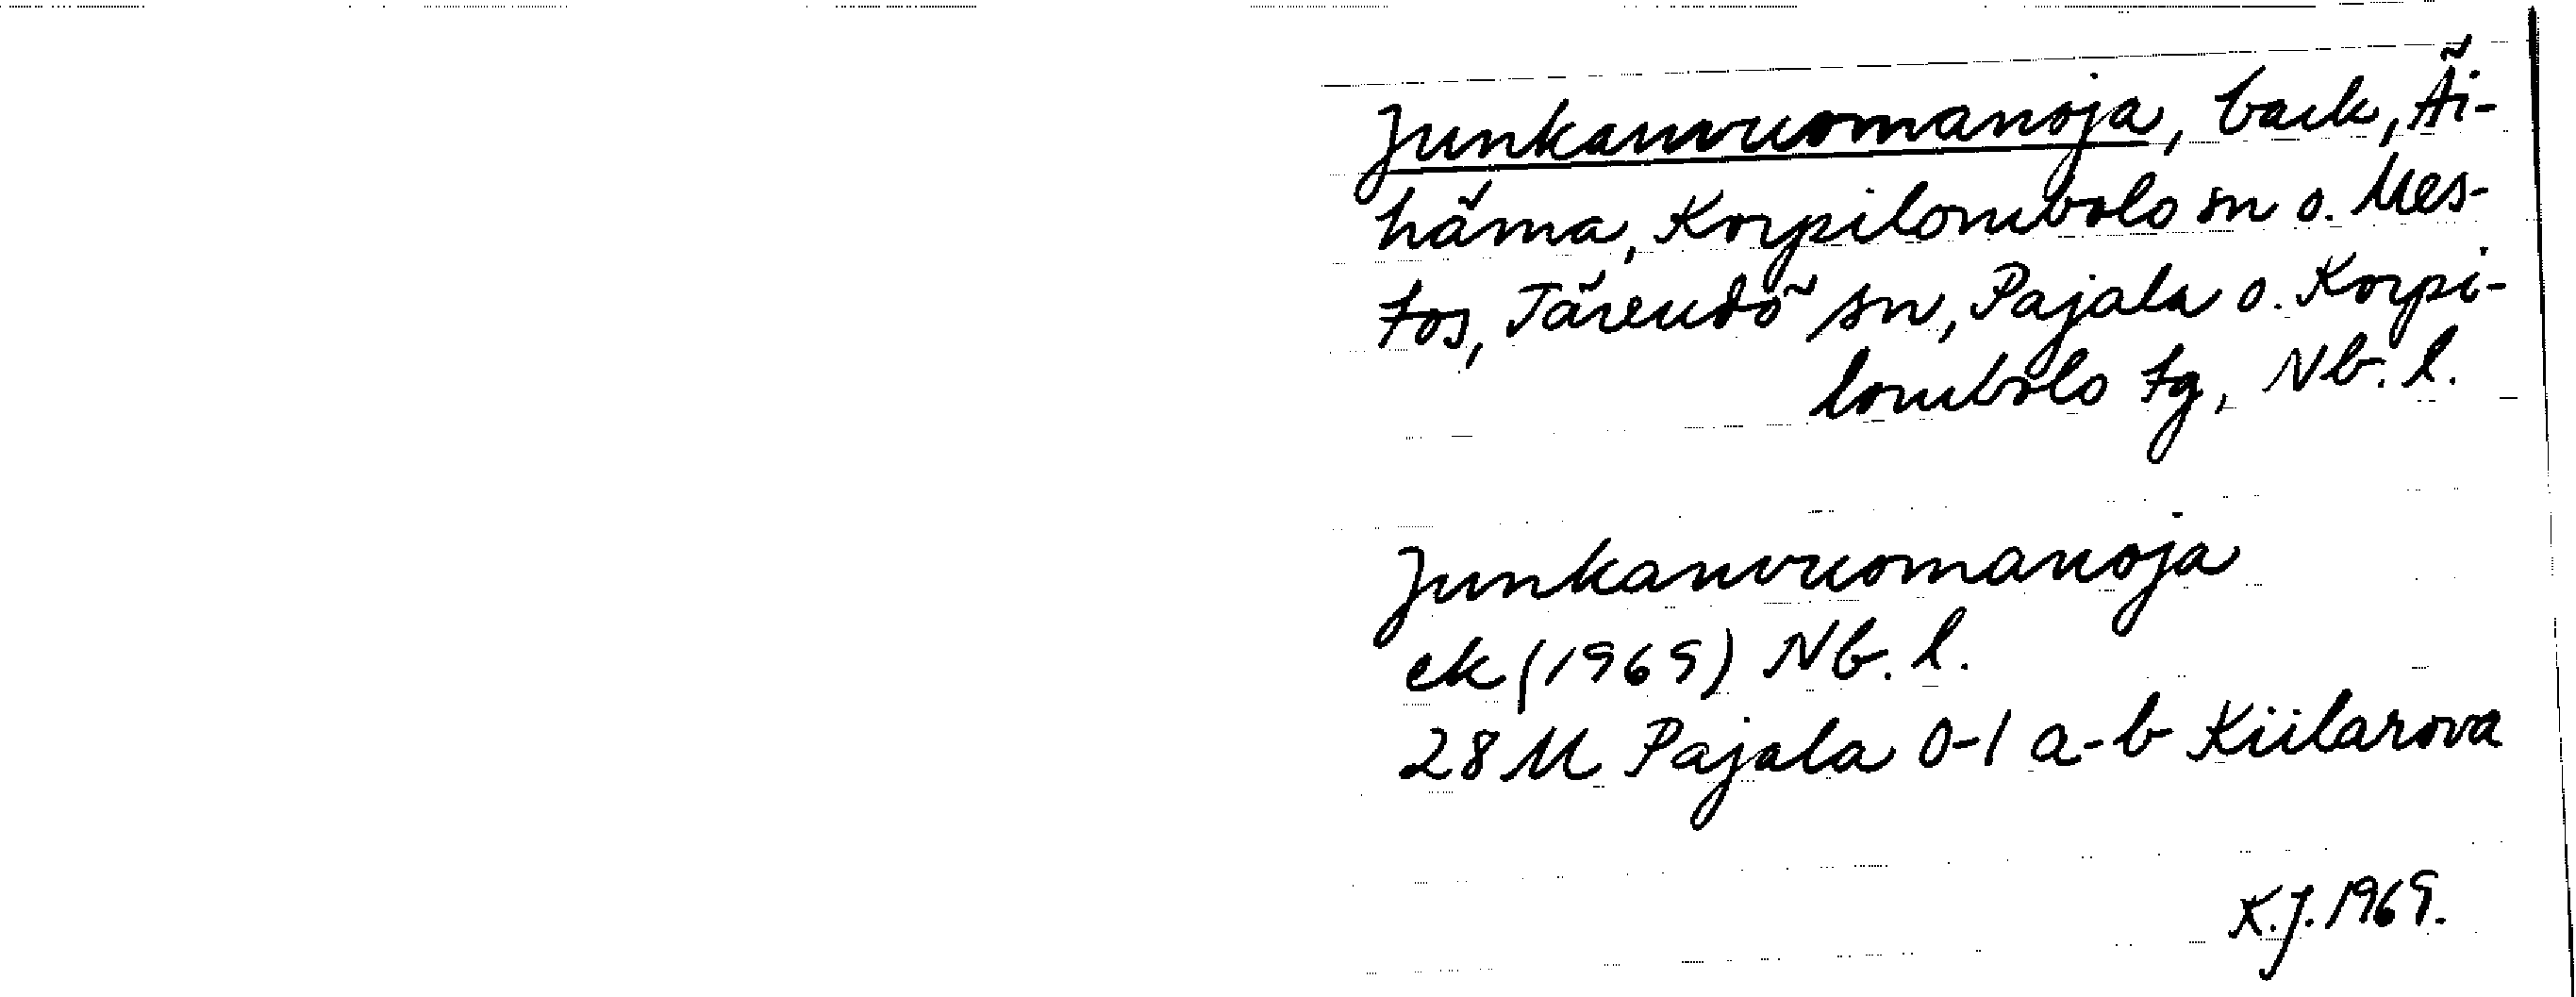 Junkanvuomanoja, bäck, Äi-
häma, Korpilombolo sn o. Mes-
tos, Tärendö sn, Pajala o. Korpi-
lombolo tg, Nb. l.
Junkanvuomanoja
ek (1969) Nb. l.
28 M Pajala 0-1 a-b Kiilarova
K.J. 1969.